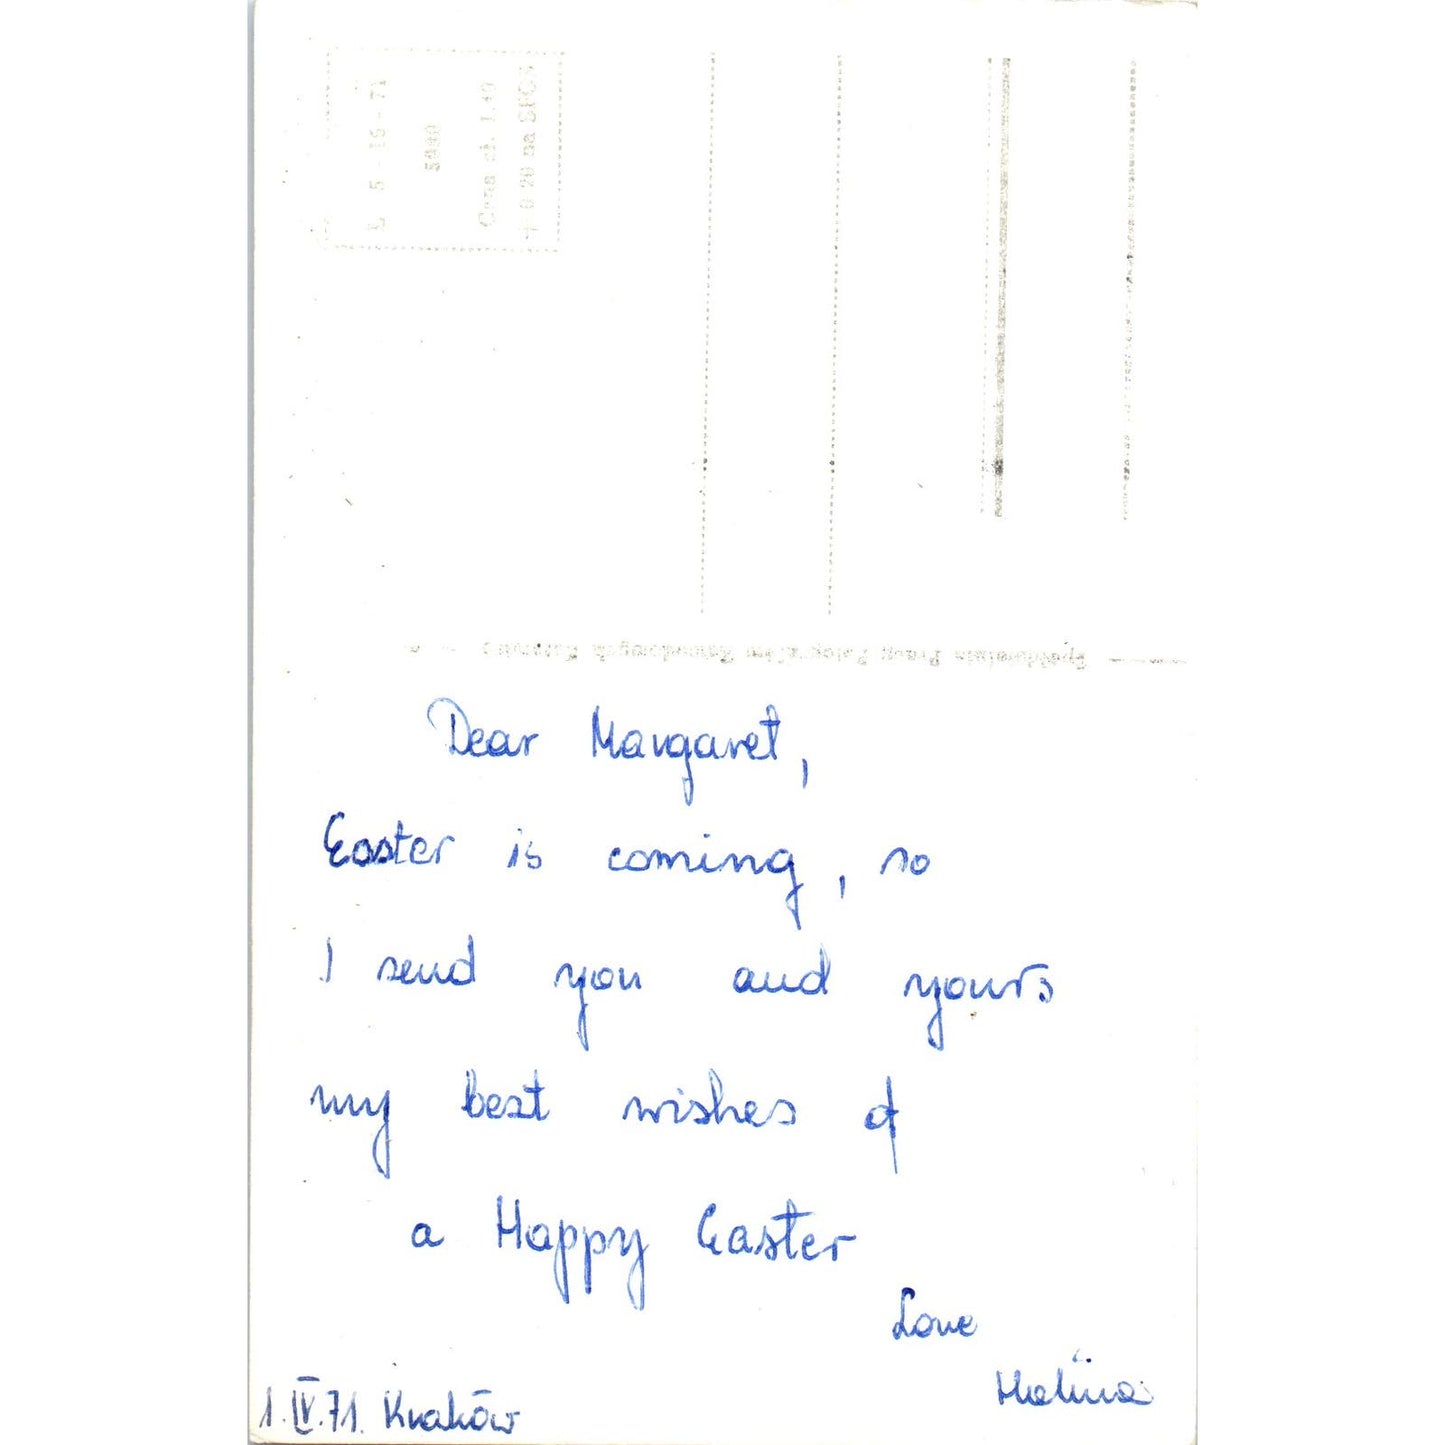 L 5 - 16 - 71
5000
Cena zł. 1.40
+ 0 20 na SFOS
Spółdzielnia Pracy
Dear Margaret,
Easter is coming, so
I send you and yours
my best wishes of
a Happy Easter
Love
Halina
1.IV.71. Kraków